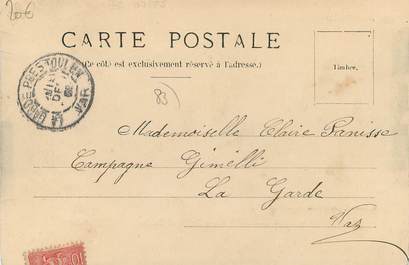 20€
CARTE POSTALE
(Ce côté est exclusivement réservé à l'adresse.)
Timbre.
LA GARDE-PRES-TOULON
VAR
83)
Mademoiselle Claire Panisse
Campagne Gimelli
La Garde
Var
10